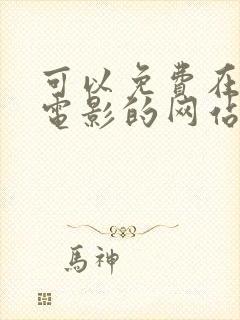 可以免费在
电影的网站
馬神